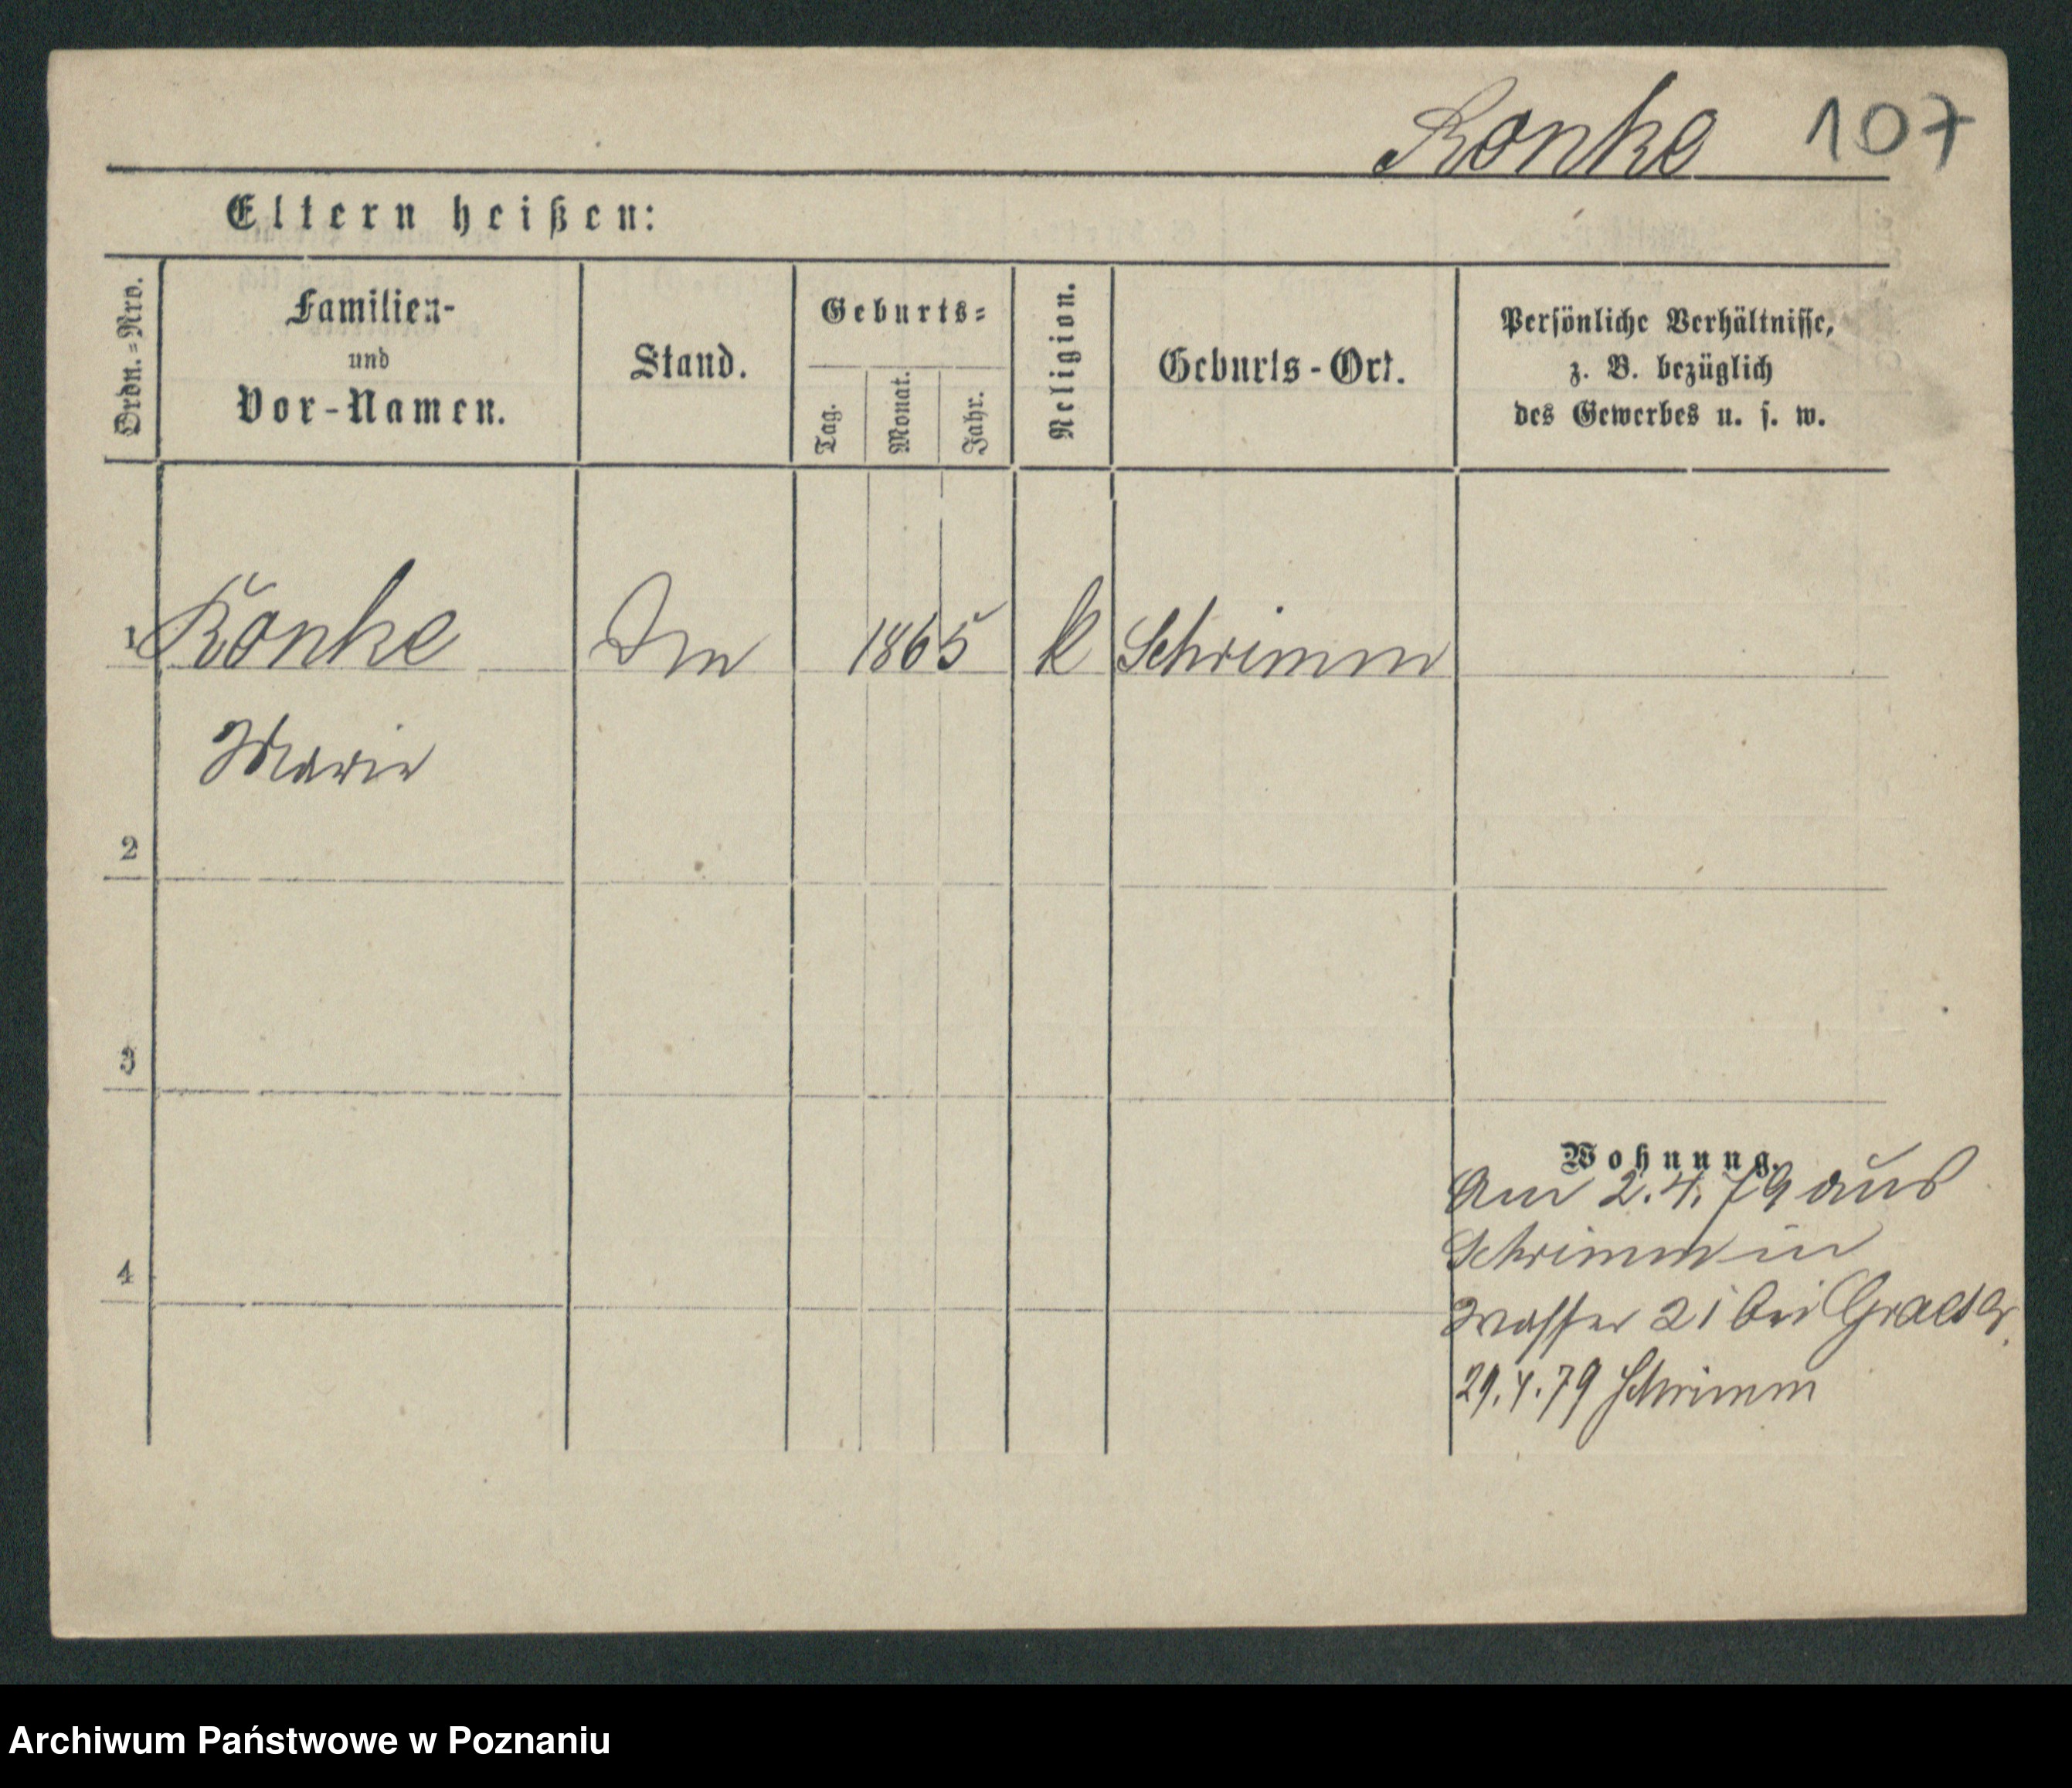 Ronke 107
Eltern heißen:
Ordn.-Nro.
Familien-
und
Vor-Namen.
Stand.
Geburts-
Tag.
Monat.
Jahr.
Religion.
Geburts-Ort.
Persönliche Verhältnisse,
z. B. bezüglich
des Gewerbes u. s. w.
1 Ronke 1865 k Schrimm
Marie
2
3
4
Wohnung.
Am 2.4.79 aus
Schrimm in
Wasser 21 bei
29.4.79 Schrimm
Archiwum Państwowe w Poznaniu